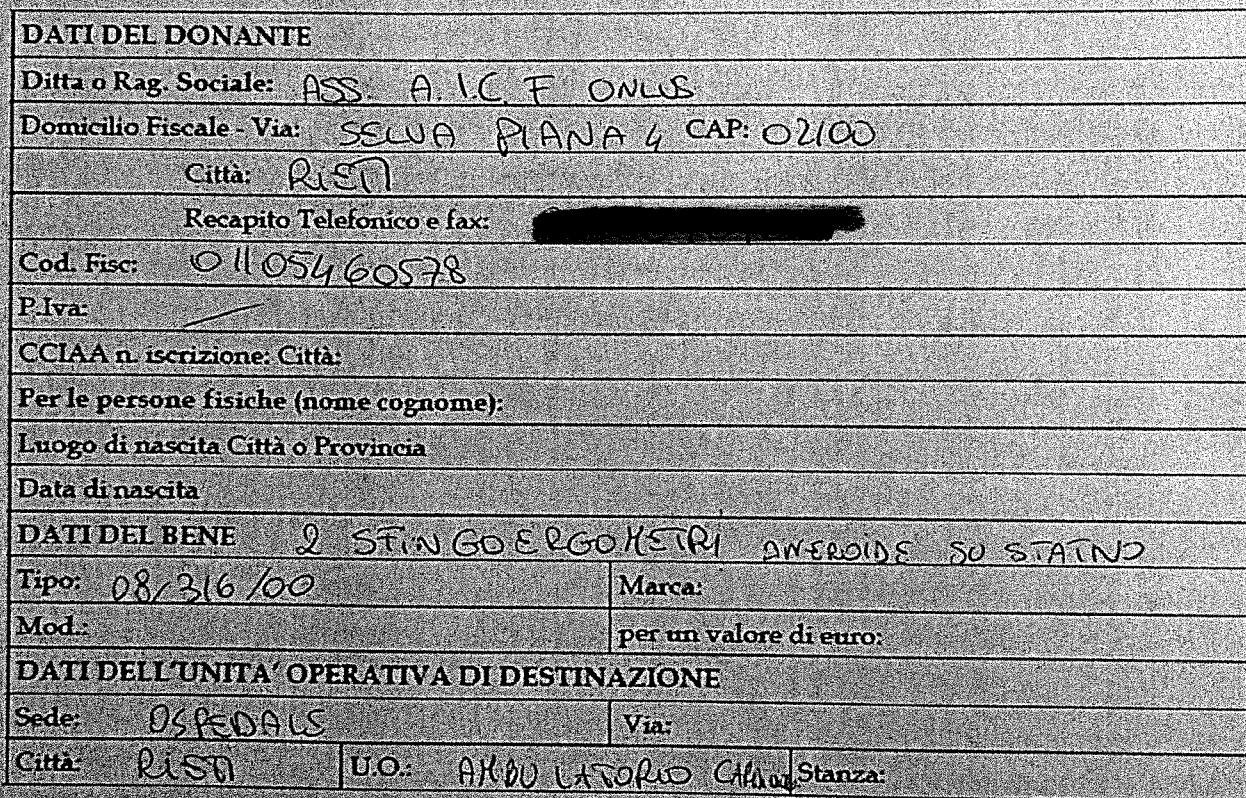 DATI DEL DONANTE
Ditta o Rag. Sociale: ASS. A.I.C.F ONLUS
Domicilio Fiscale - Via: SELVA PIANA 4 CAP: 02100
Città: RIETI
Recapito Telefonico e fax:
Cod. Fisc: 01105460578
P.Iva: —
CCIAA n. iscrizione: Città:
Per le persone fisiche (nome cognome):
Luogo di nascita Città o Provincia
Data di nascita
DATI DEL BENE 2 SFINGOERGOMETRI ANEROIDE SU STATIVO
Tipo: 08/316/00 Marca:
Mod.: per un valore di euro:
DATI DELL'UNITA' OPERATIVA DI DESTINAZIONE
Sede: OSPEDALE Via:
Città: RIETI U.O.: AMBULATORIO Stanza: